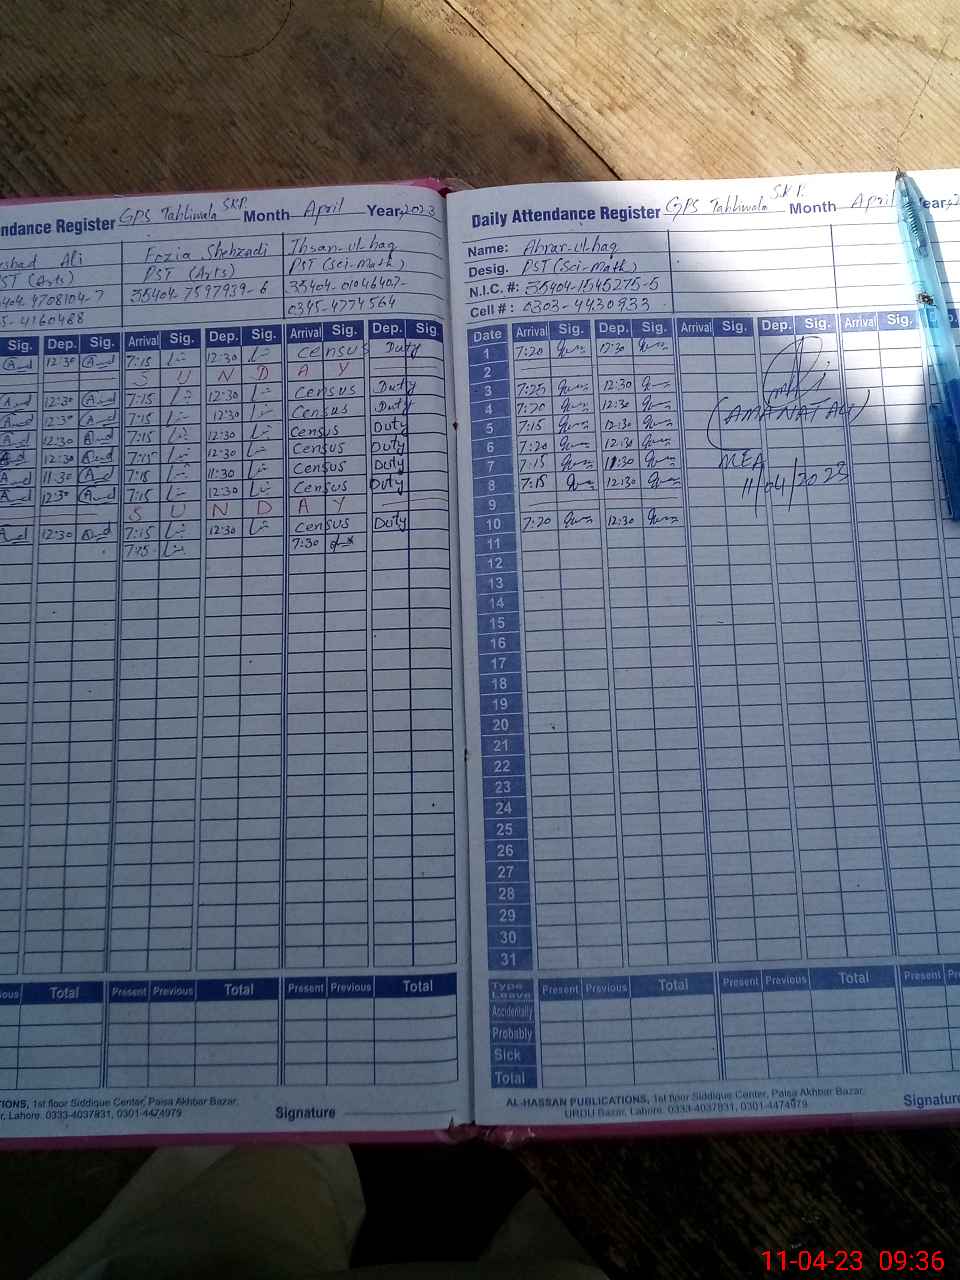 ndance Register GPS Tahliwala SKP. Month April Year 2023
shad Ali Fozia Shehzadi Ihsan-ul-haq
PST (Arts) PST (Arts) PST (Sci-Math)
404-4708104-7 35404-7597939-6 35404-0104640?-
5-4160488 0345-4774564
Sig. Dep. Sig. Arrival Sig. Dep. Sig. Arrival Sig. Dep. Sig.
12:30 7:15 12:30 Census Duty
S U N D A Y
12:30 7:15 12:30 Census Duty
12:30 7:15 12:30 Census Duty
12:30 7:15 12:30 Census Duty
12:30 7:15 12:30 Census Duty
11:30 7:15 11:30 Census Duty
12:30 7:15 12:30 Census Duty
S U N D A Y
12:30 7:15 12:30 Census Duty
7:15 7:30
ious Total Present Previous Total Present Previous Total
TIONS, 1st floor Siddique Center, Paisa Akhbar Bazar,
r, Lahore. 0333-4037831, 0301-4474979
Signature
Daily Attendance Register GPS Tahliwala S.K.P. Month April Year
Name: Abrar-ul-haq
Desig. PST (Sci-Math)
N.I.C. #: 35404-1545275-5
Cell #: 0303-4430933
Date Arrival Sig. Dep. Sig. Arrival Sig. Dep. Sig. Arrival Sig. Dep.
1 7:20 12:30
2
3 7:25 12:30
4 7:20 12:30
5 7:15 12:30
6 7:20 12:30
7 7:15 11:30
8 7:15 12:30
9
10 7:20 12:30
11
12
13
14
15
16
17
18
19
20
21
22
23
24
25
26
27
28
29
30
31
(AMANAT ALI)
MEA
11/04/2023
Type Leave Present Previous Total Present Previous Total Present
Accidentally
Probably
Sick
Total
AL-HASSAN PUBLICATIONS, 1st floor Siddique Center, Paisa Akhbar Bazar,
URDU Bazar, Lahore. 0333-4037831, 0301-4474979
Signature
11-04-23 09:36